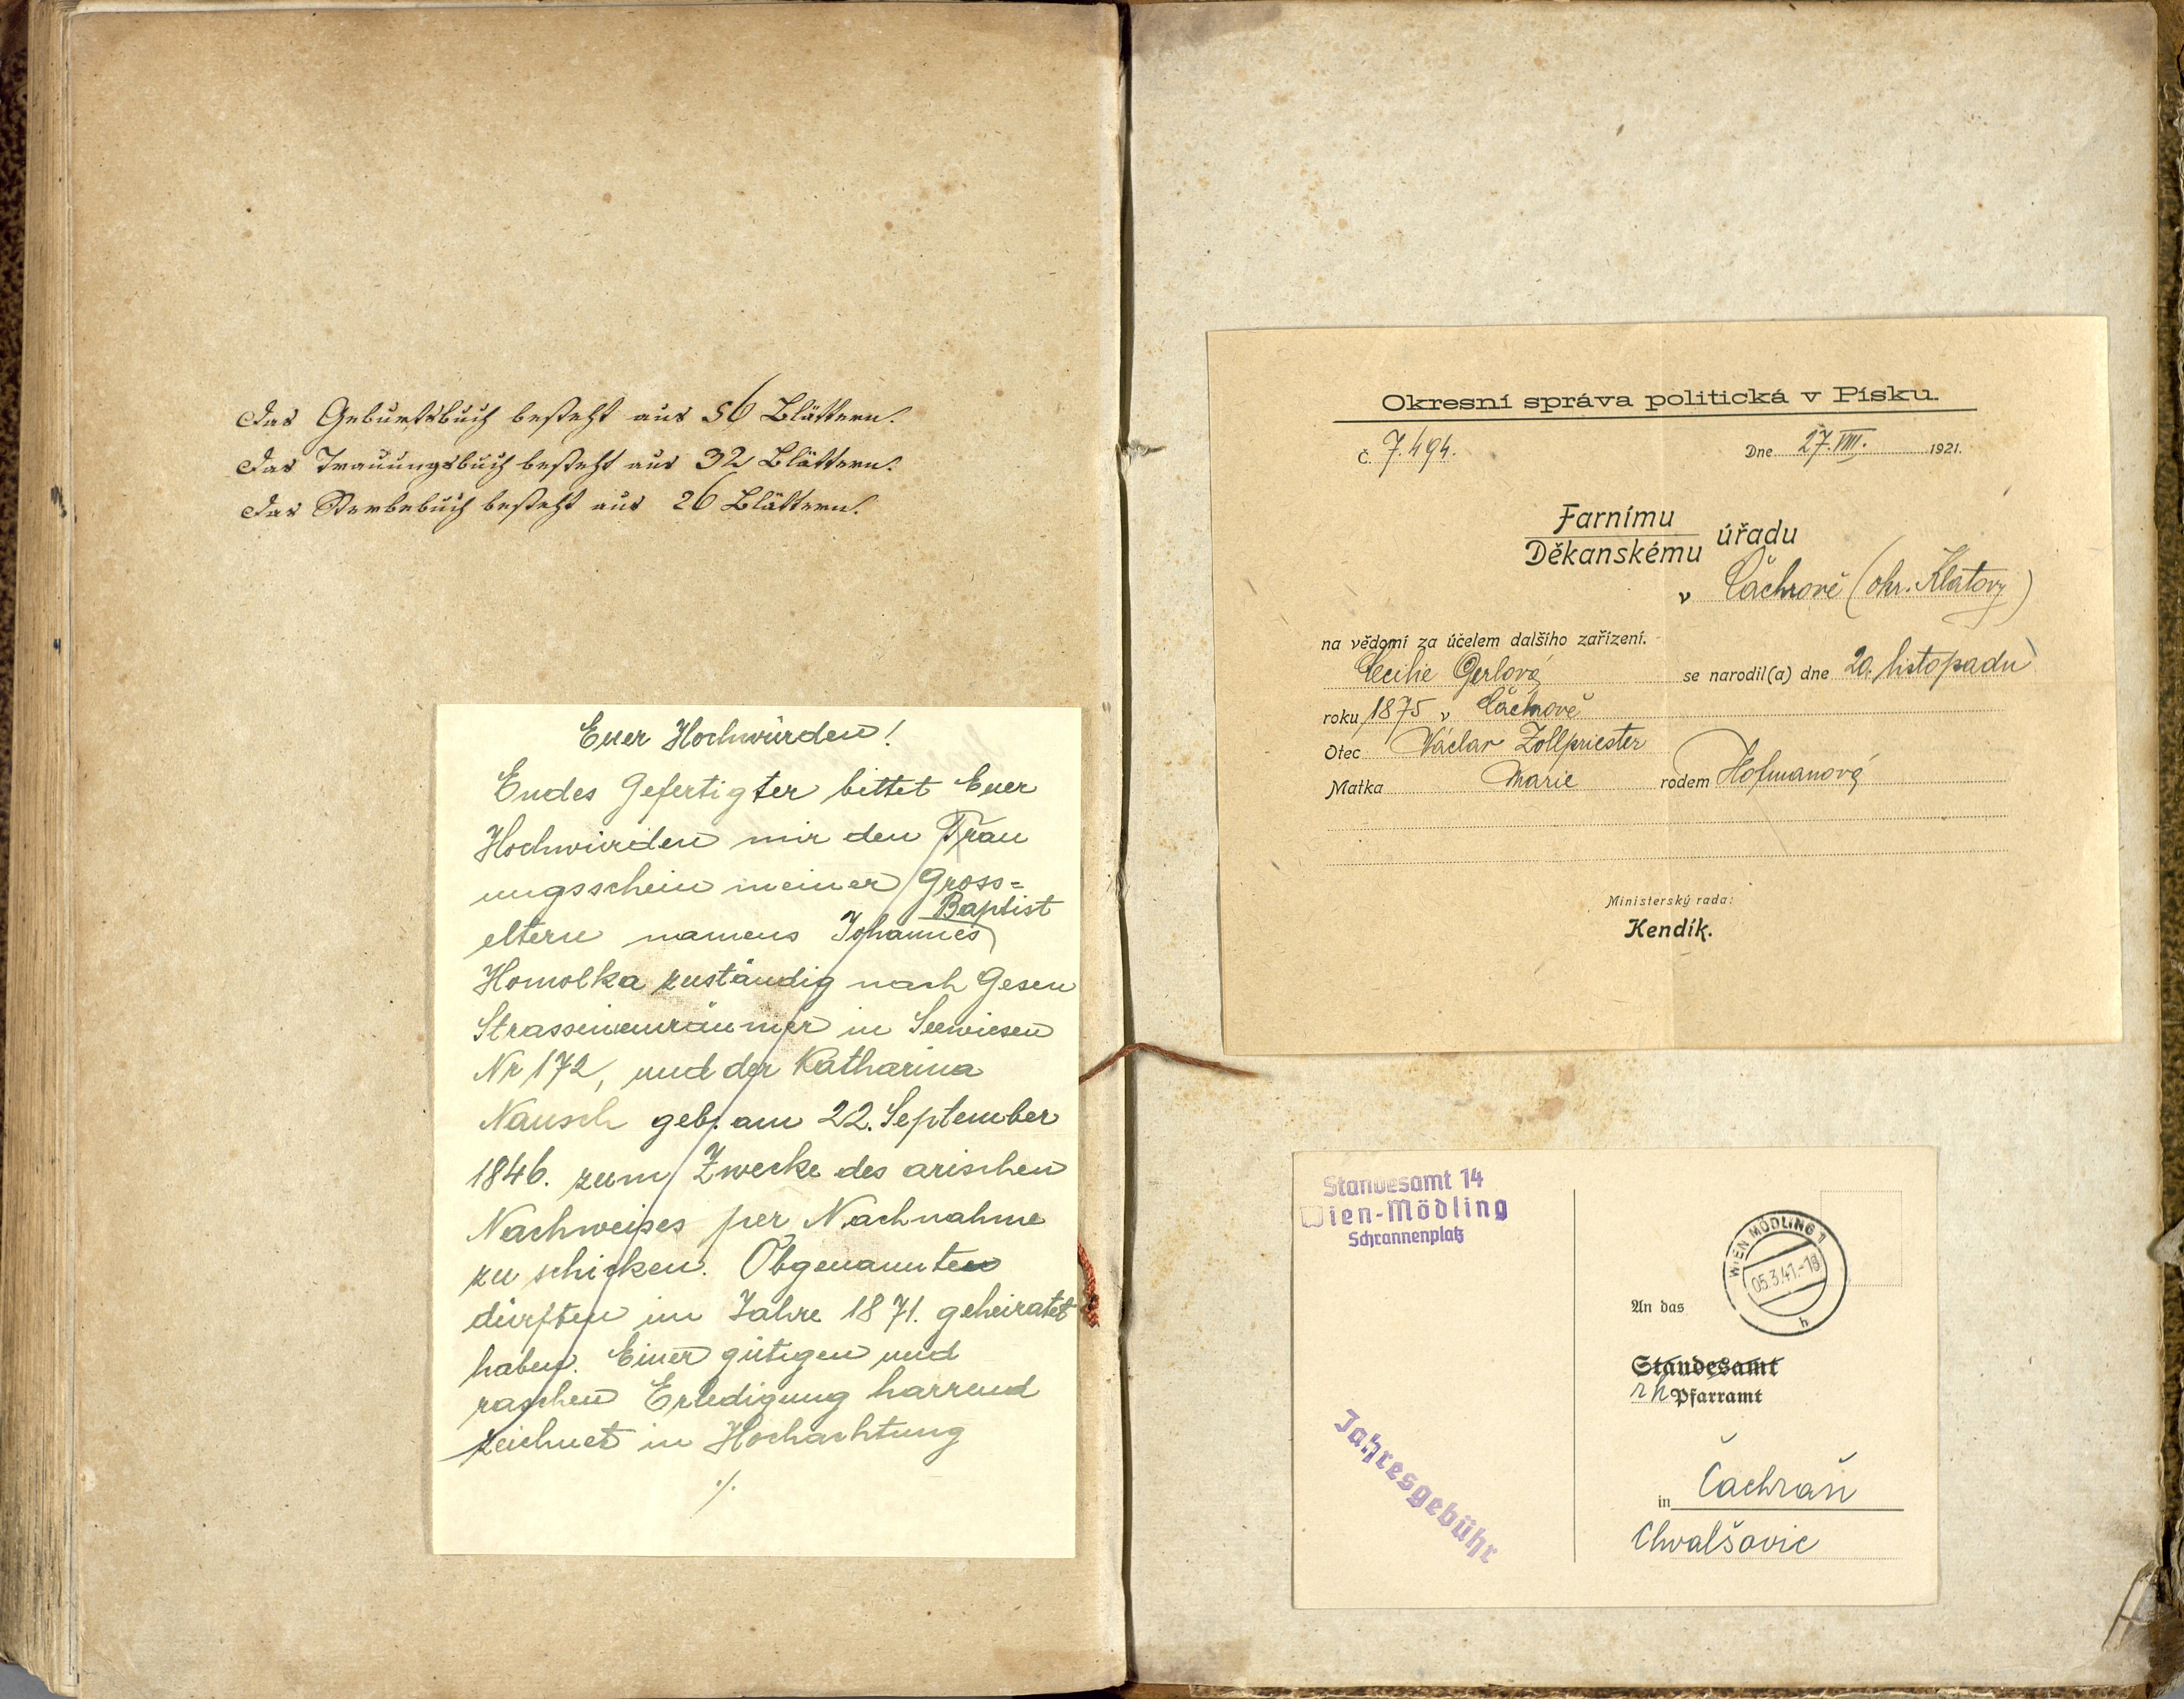 Das Geburtsbuch besteht aus 56 Blättern.
Das Trauungsbuch besteht aus 32 Blättern.
Das Sterbebuch besteht aus 26 Blättern.
Euer Hochwürden!
Endes Gefertigter bittet Euer
Hochwürden mir den Trau
ungsschein meiner Gross=
Baptist
eltern namens Johannes
Homolka zuständig nach Gesen
Strasseneinräumer in Seewiesen
Nr 172, und der Katharina
Nausch geb. am 22. September
1846. zum Zwecke des arischen
Nachweises per Nachnahme
zu schicken. Obgenannten
dürften im Jahre 1871. geheiratet
haben. Einer gütigen und
raschen Erledigung harrend
zeichnet in Hochachtung
./.
Okresní správa politická v Písku.
Č. 7.494. Dne 27. VIII. 1921.
Farnímu
Děkanskému úřadu
v Čachrově (okr. Klatovy)
na vědomí za účelem dalšího zařízení.
Cecilie Gerlová se narodil(a) dne 20. listopadu
roku 1875 v Čachrově
Otec Václav Zollpriester
Matka Marie rodem Hofmanová
Ministerský rada:
Kendík.
Standesamt 14
Wien-Mödling
Schrannenplatz
WIEN MÖDLING 1
05.3.41.-18
h
An das
Standesamt
rk Pfarramt
in Čachrau
Chvalšovic
Jahresgebühr